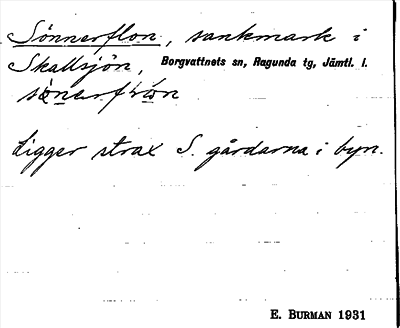 Sönnerflon, sankmark i
Skallsjön, Borgvattnets sn, Ragunda tg, Jämtl. l.
Ligger strax S. gårdarna i byn.
E. BURMAN 1931